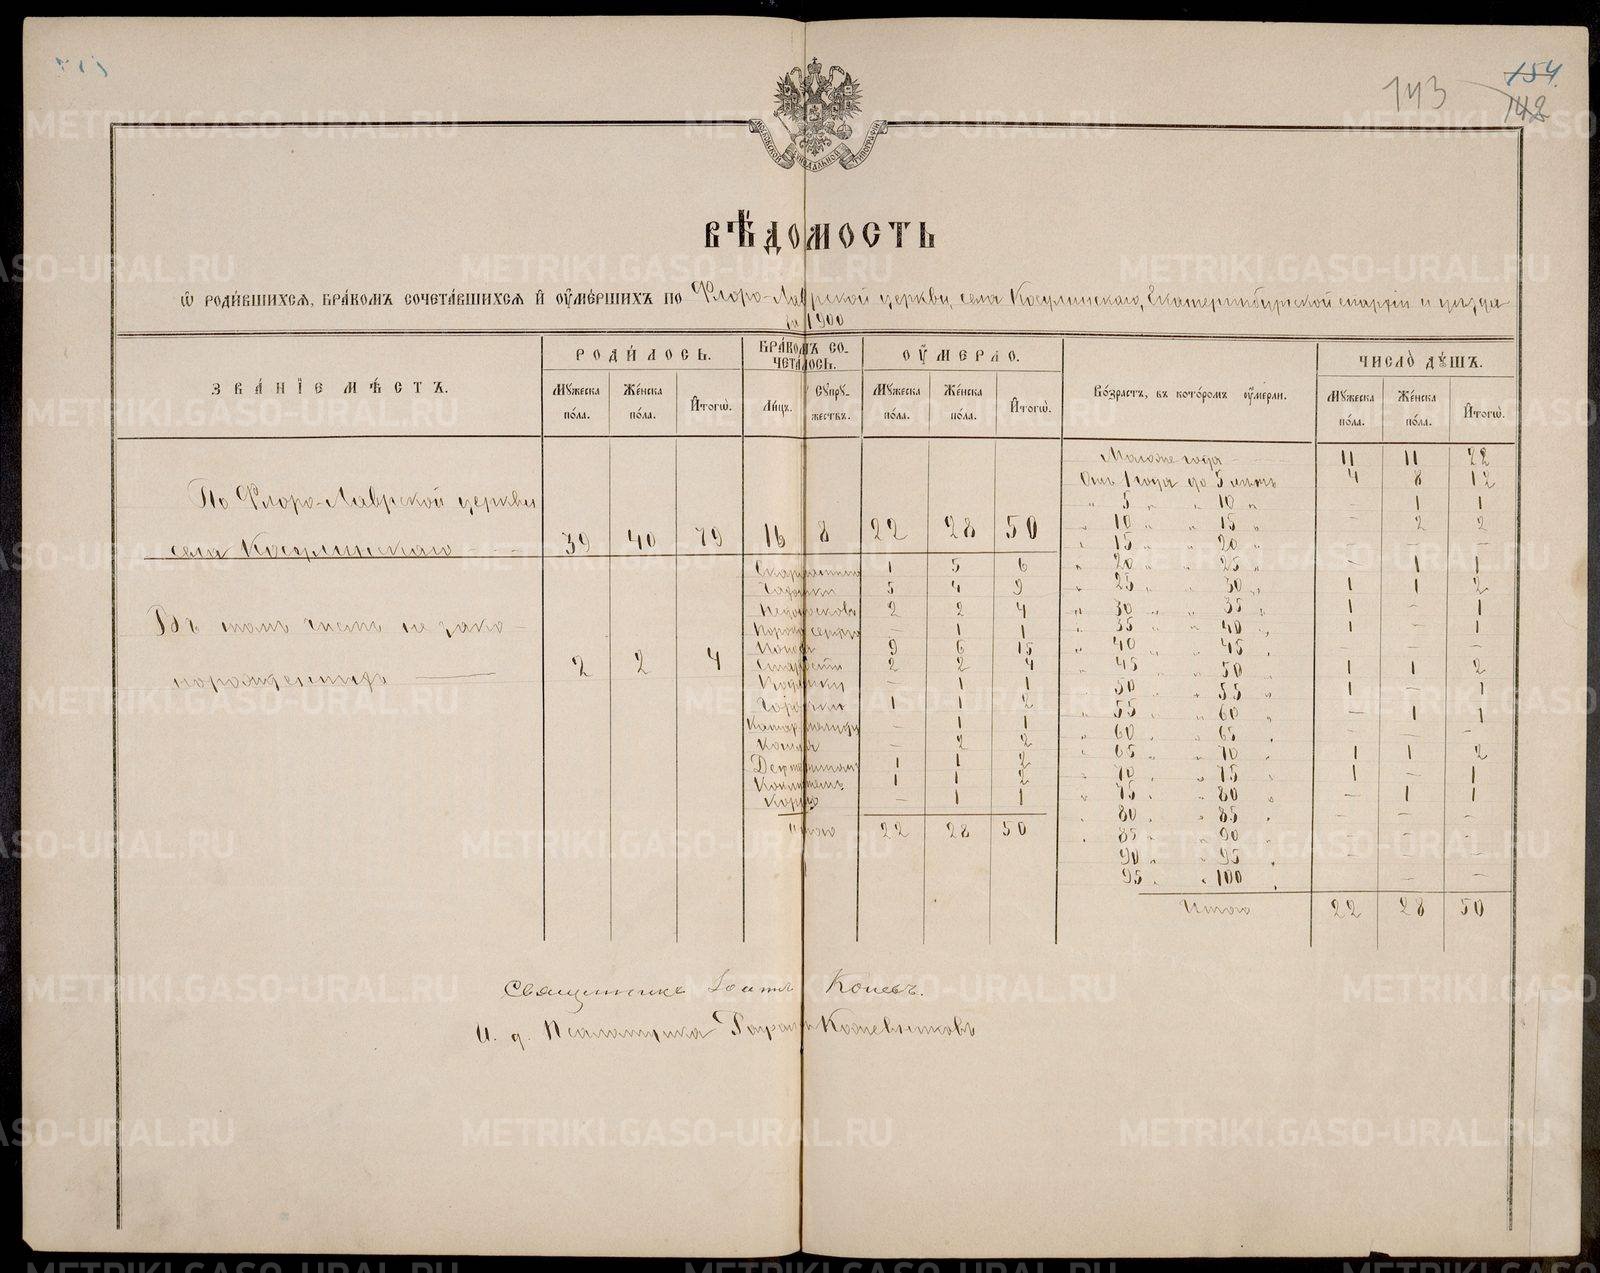 143
154.
142
МОСКОВСКОЙ СѴНОДАЛЬНОЙ ТИПОГРАФІИ
ВѢДОМОСТЬ
Ѡ РОДИВШИХСЯ, БРАКОМЪ СОЧЕТАВШИХСЯ И ОУМЕРШИХЪ ПО Флоро-Лаврской церкви, села Косулинскаго, Екатеринбургской епархіи и уѣзда
за 1900
ЗВАНІЕ МѢСТЪ.
РОДИЛОСЬ.
Мужеска пола.
Женска пола.
Итогѡ.
БРАКОМЪ СО-
ЧЕТАЛОСЬ.
Лицъ.
Супру-
жествъ.
ОУМЕРЛО.
Мужеска пола.
Женска пола.
Итогѡ.
Возрастъ, въ которомъ оумерли.
ЧИСЛО ДУШЪ.
Мужеска пола.
Женска пола.
Итогѡ.
По Флоро-Лаврской церкви
села Косулинскаго 39 40 79 16 8 22 28 50
Въ томъ числѣ не зако-
норожденныхъ 2 2 4
Скарлатины 1 5 6
Чахотки 5 4 9
2 2 4
– 1 1
Поноса 9 6 15
Старости 2 2 4
– 1 1
Горячки 1 1 2
– 1 1
Кашля – 2 2
1 1 2
1 1 2
Корью – 1 1
Итого 22 28 50
Моложе года 11 11 22
Отъ 1 года до 5 лѣтъ 4 8 12
" 5 " " 10 " – 1 1
" 10 " " 15 " – 2 2
" 15 " " 20 " – – –
" 20 " " 25 " – 1 1
" 25 " " 30 " 1 1 2
" 30 " " 35 " 1 – 1
" 35 " " 40 " 1 – 1
" 40 " " 45 " – – –
" 45 " " 50 " 1 1 2
" 50 " " 55 " 1 – 1
" 55 " " 60 " – 1 1
" 60 " " 65 " – – –
" 65 " " 70 " 1 1 2
" 70 " " 75 " 1 – 1
" 75 " " 80 " – 1 1
" 80 " " 85 " – – –
" 85 " " 90 " – – –
90 " " 95 " – – –
95 " " 100 " – –
Итого 22 28 50
Священникъ Іоаннъ Коневъ.
И. д. Псаломщика Кожевниковъ
METRIKI.GASO-URAL.RU